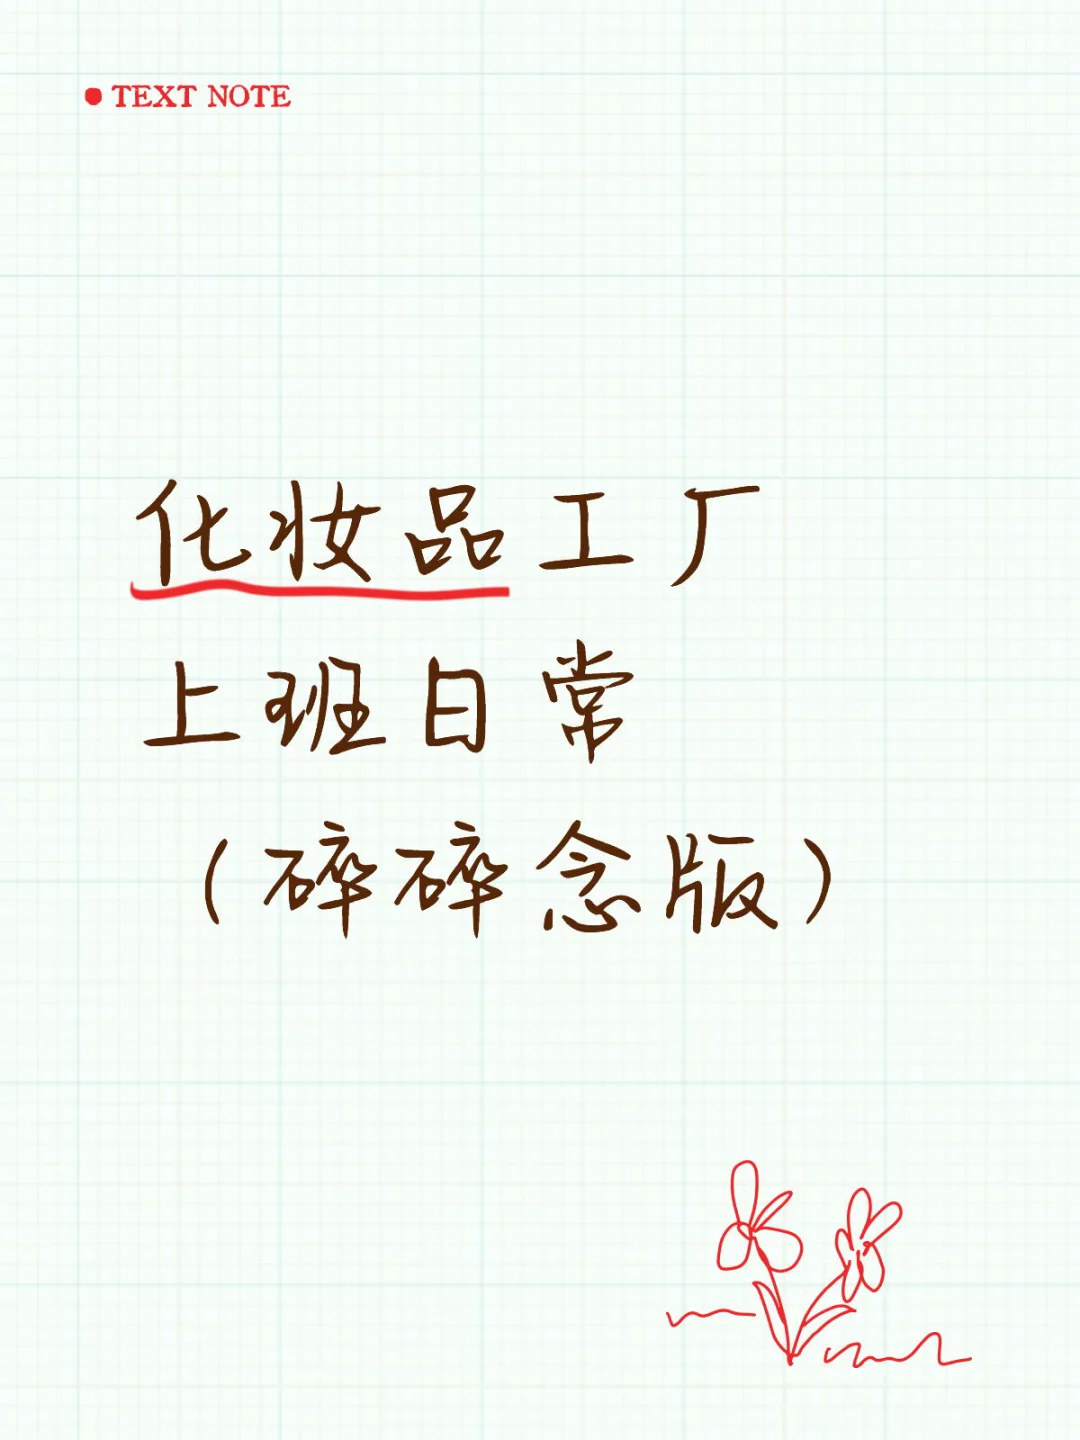 TEXT NOTE
化妆品工厂
上班日常
（碎碎念版）